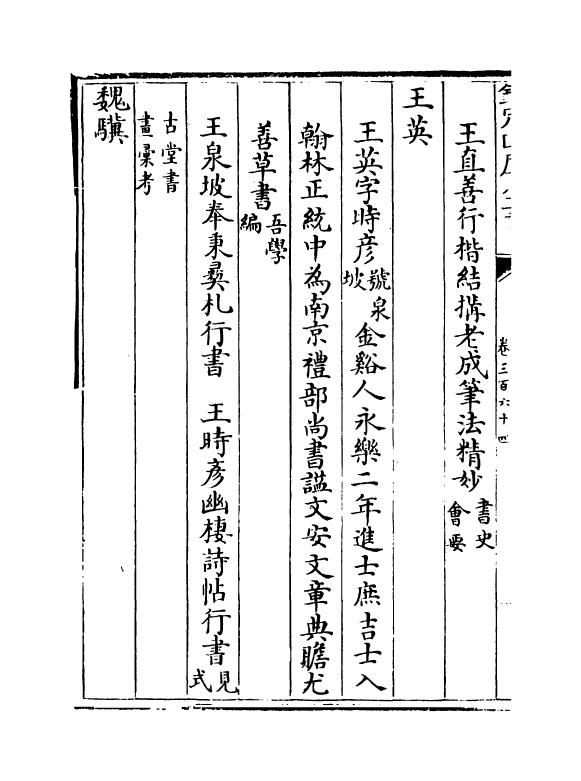 卷三百六十四
王直善行楷結搆老成筆法精妙書史會要
王英
王英字時彦號泉坡金谿人永樂二年進士庶吉士入
翰林正統中為南京禮部尚書諡文安文章典贍尤
善草書吾學編
王泉坡奉秉彛札行書　王時彦幽棲詩帖行書見式
古堂書畫彚考
魏驥